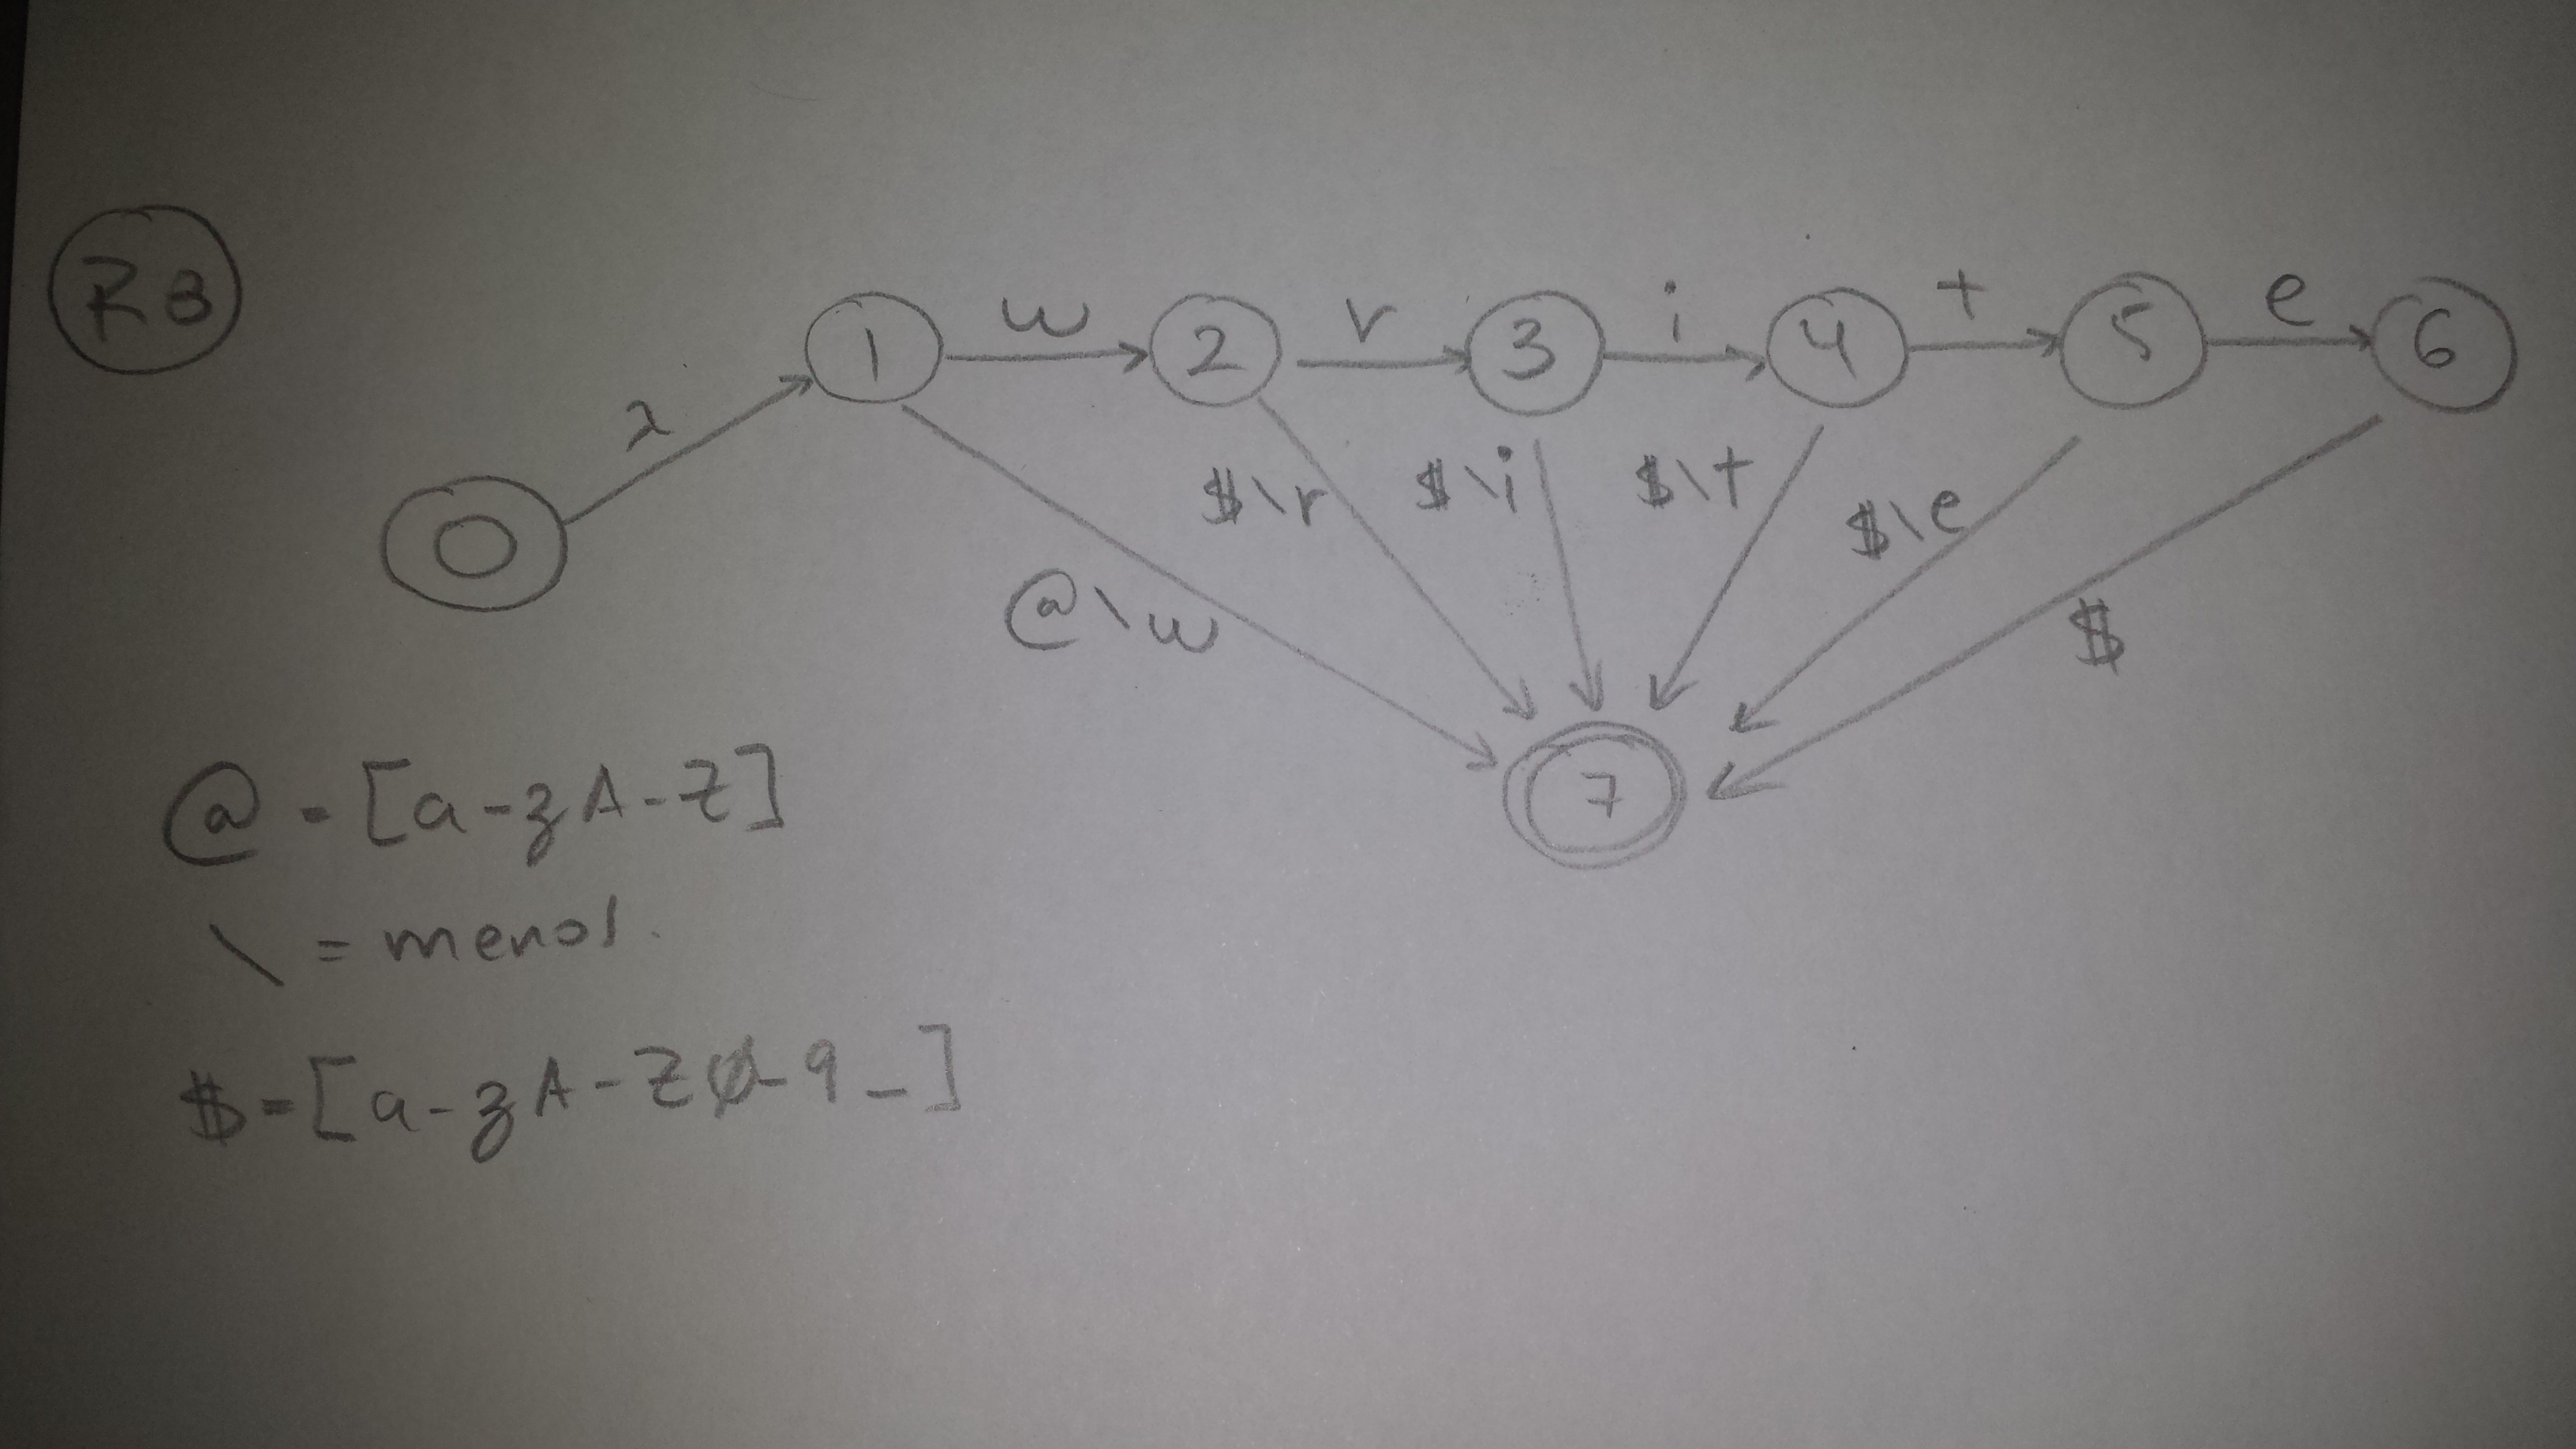 R3
λ
1 w 2 r 3 i 4 t 5 e 6
0
$\r $\i $\t $\e $
@\w
7
@ = [a-zA-Z]
\ = menos.
$ = [a-zA-Z0-9_]